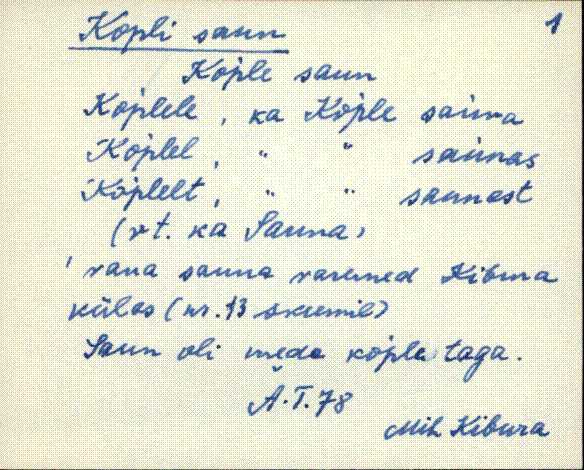 Kopli saun 1
Kople saun
Koplele, ka Kople sauna
Koplel, " " saunas
Koplelt, " " saunast
(vt. ka Sauna)
vana sauna varemed Kibura
külas (nr. 13 skeemil)
Saun oli meda kople taga.
Ä.T. 78
Mih Kibura